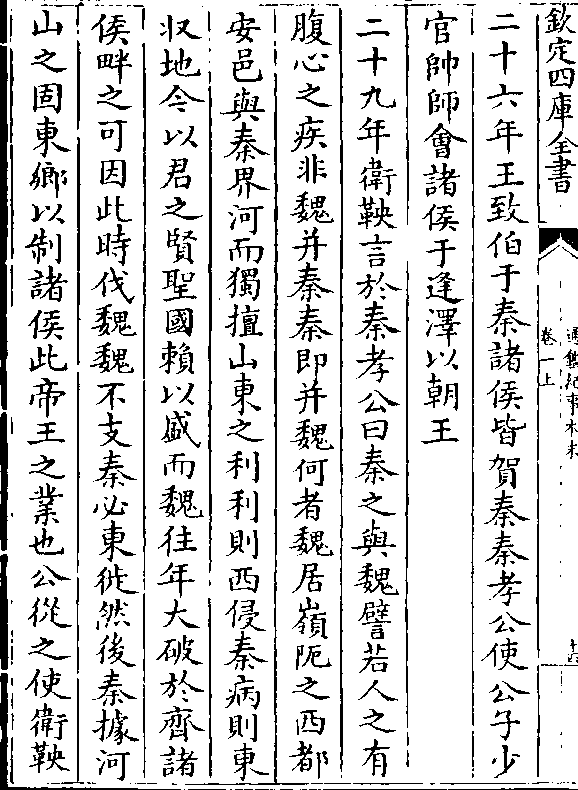 欽定四庫全書
通鑑紀事本末
卷一上
十六
二十六年王致伯于秦諸侯皆賀秦秦孝公使公子少
官帥師會諸侯于逢澤以朝王
二十九年衛鞅言於秦孝公曰秦之與魏譬若人之有
腹心之疾非魏并秦秦即并魏何者魏居嶺阨之西都
安邑與秦界河而獨擅山東之利利則西侵秦病則東
収地今以君之賢聖國賴以盛而魏往年大破於齊諸
侯畔之可因此時伐魏魏不支秦必東徙然後秦據河
山之固東鄉以制諸侯此帝王之業也公從之使衛鞅